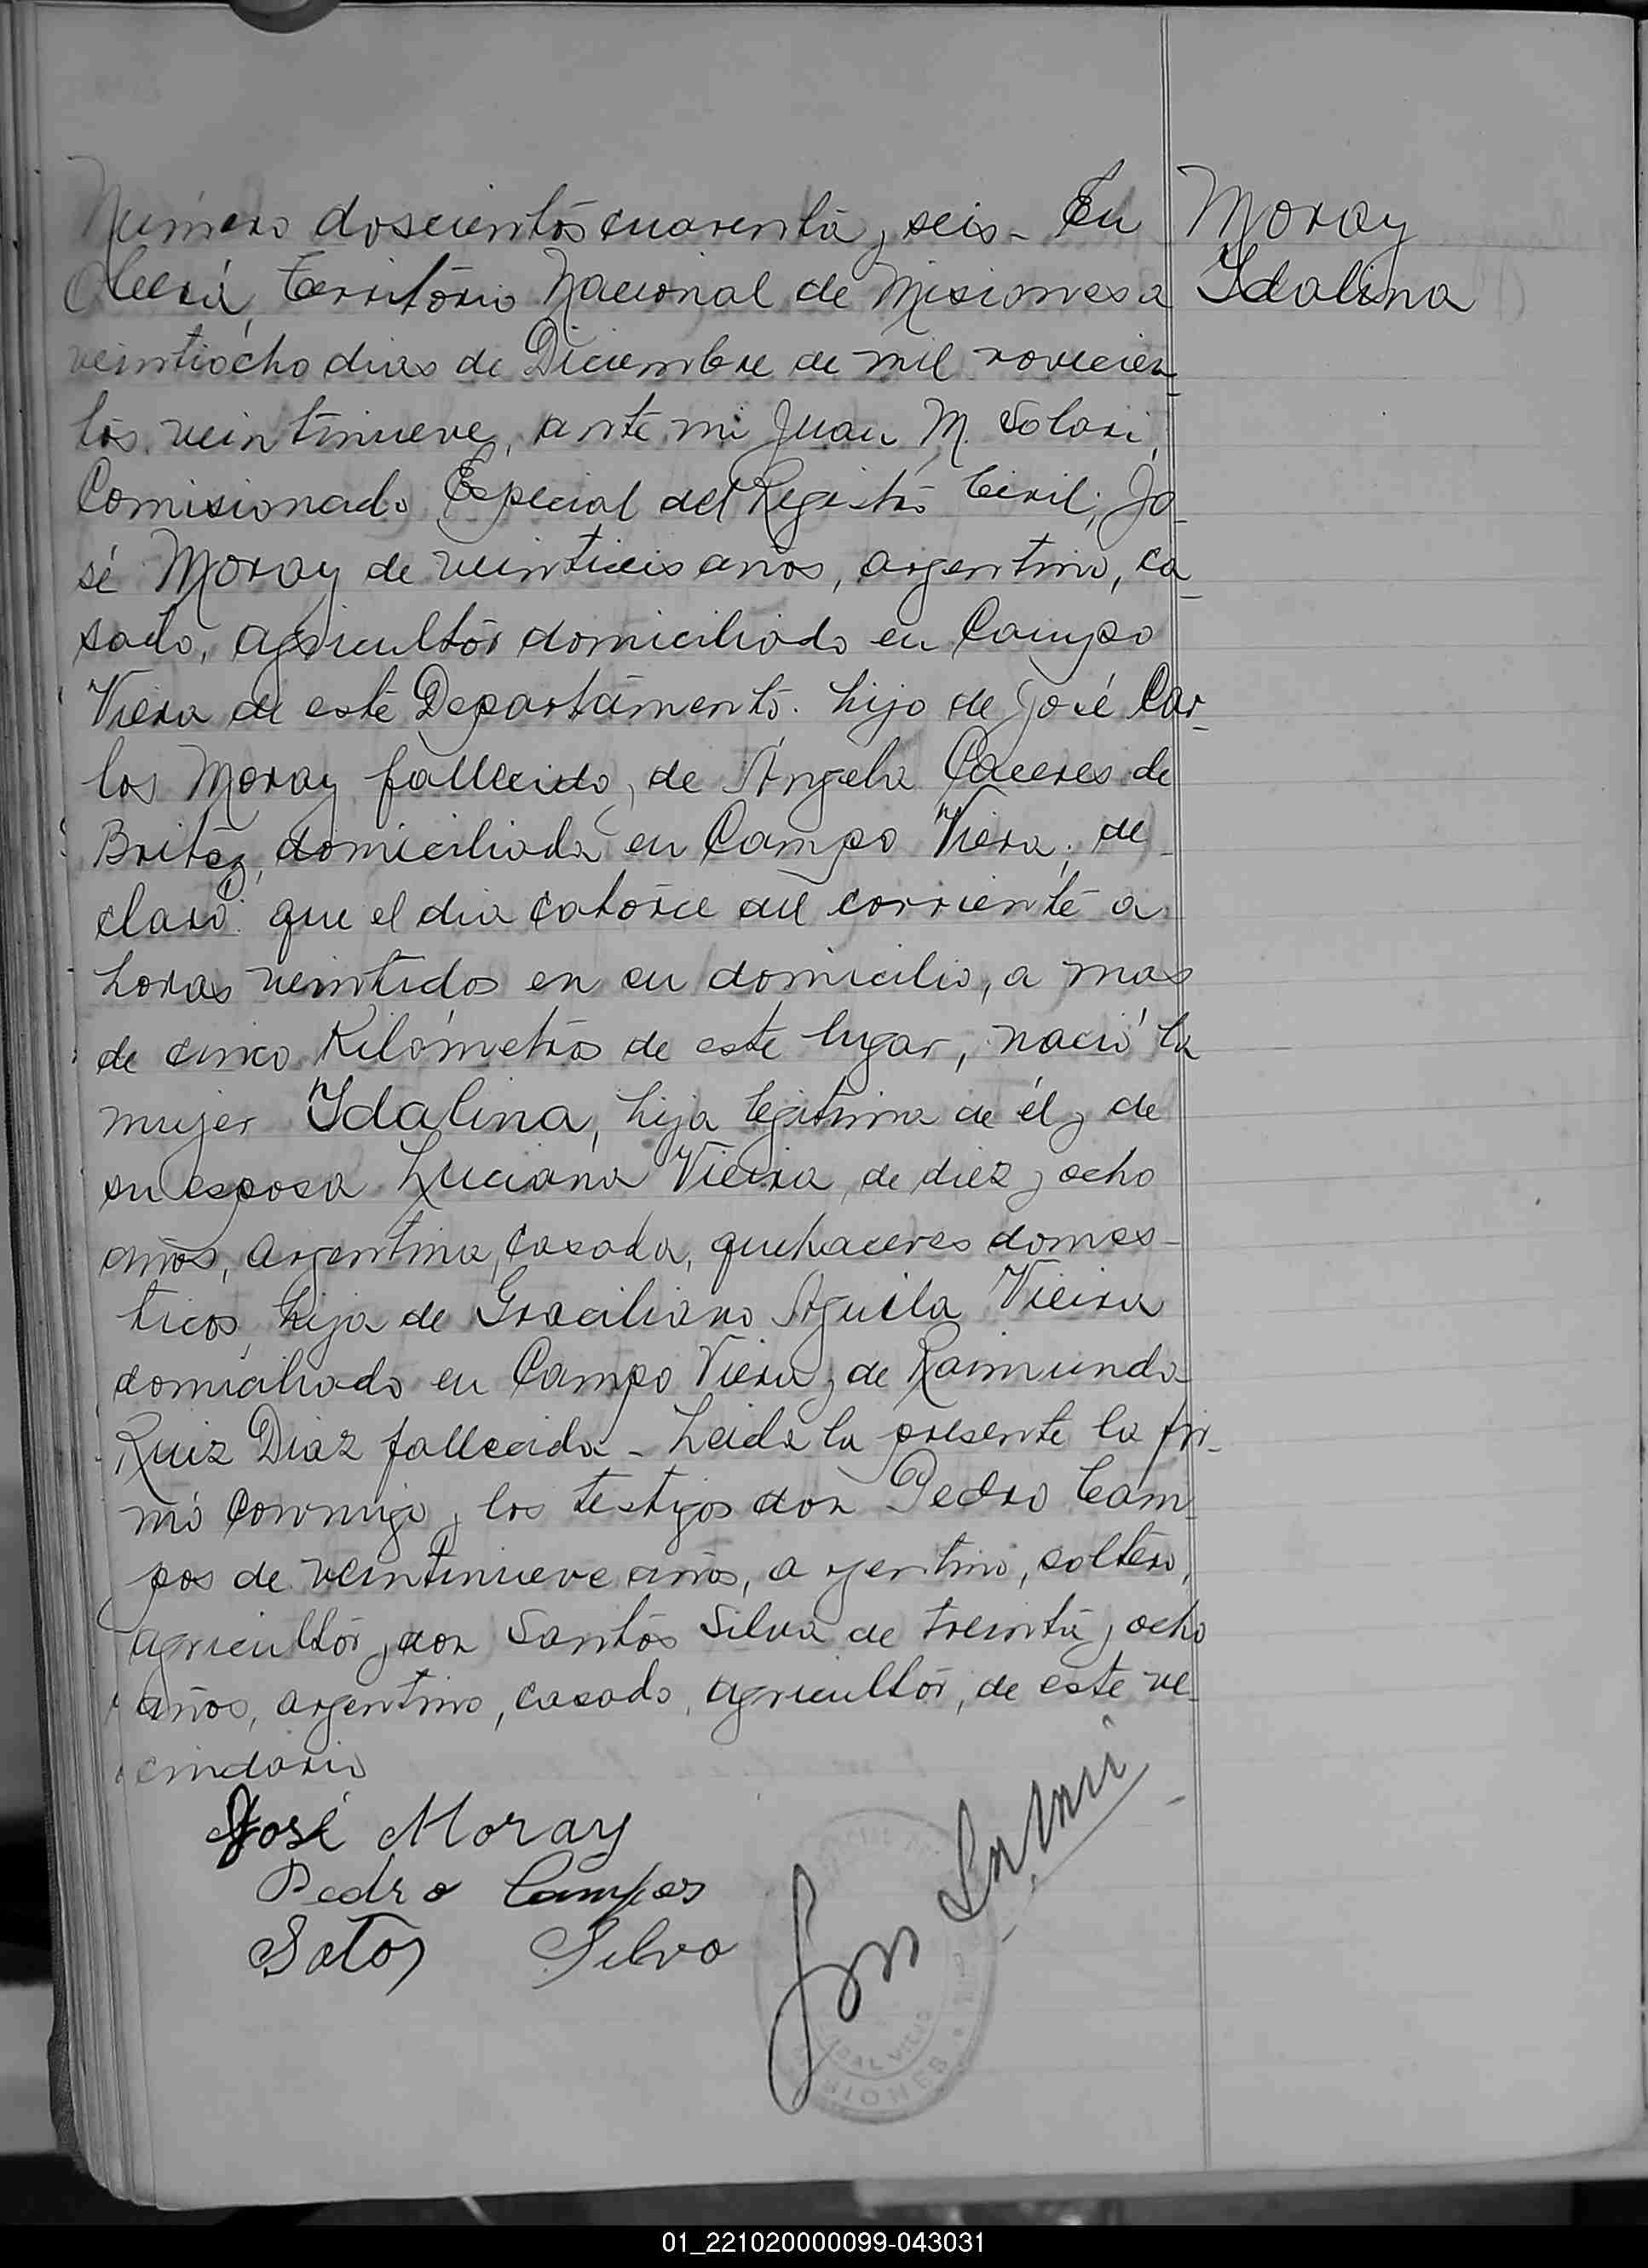 Número doscientos cuarenta y seis - En
Oberá, Territorio Nacional de Misiones a
veintiocho dias de Diciembre de mil novecien
tos veintinueve, ante mi Juan M. Solari,
Comisionado Especial del Registro Civil; Jo_
sé Moray de veintiseis años, argentino, ca_
sado, agricultor domiciliado en Campo
Viera de este Departamento. hijo de José Car_
los Moray fallecido y de Angela Caceres de
Britez, domiciliada en Campo Viera; de_
claró: que el dia catorce del corriente a
horas veintidos en su domicilio, a mas
de cinco Kilómetros de este lugar, nació la
mujer Idalina, hija legitima de él y de
su esposa Luciana Vieira de diez y ocho
años, argentina, casada, quehaceres domes_
ticos, hija de Graciliano Aguila Vieira
domiciliado en Campo Viera y de Raimunda
Ruiz Diaz fallecida - Leida la presente la fir_
mó conmigo y los testigos don Pedro Cam_
pos de veintinueve años, argentino, soltero,
agricultor y don Santos Silva de treinta y ocho
años, argentino, casado, agricultor, de este ve_
cindario
José Moray
Pedro Campos
Satos Silva
Moray
Idalina
MISIONES
01_221020000099-043031